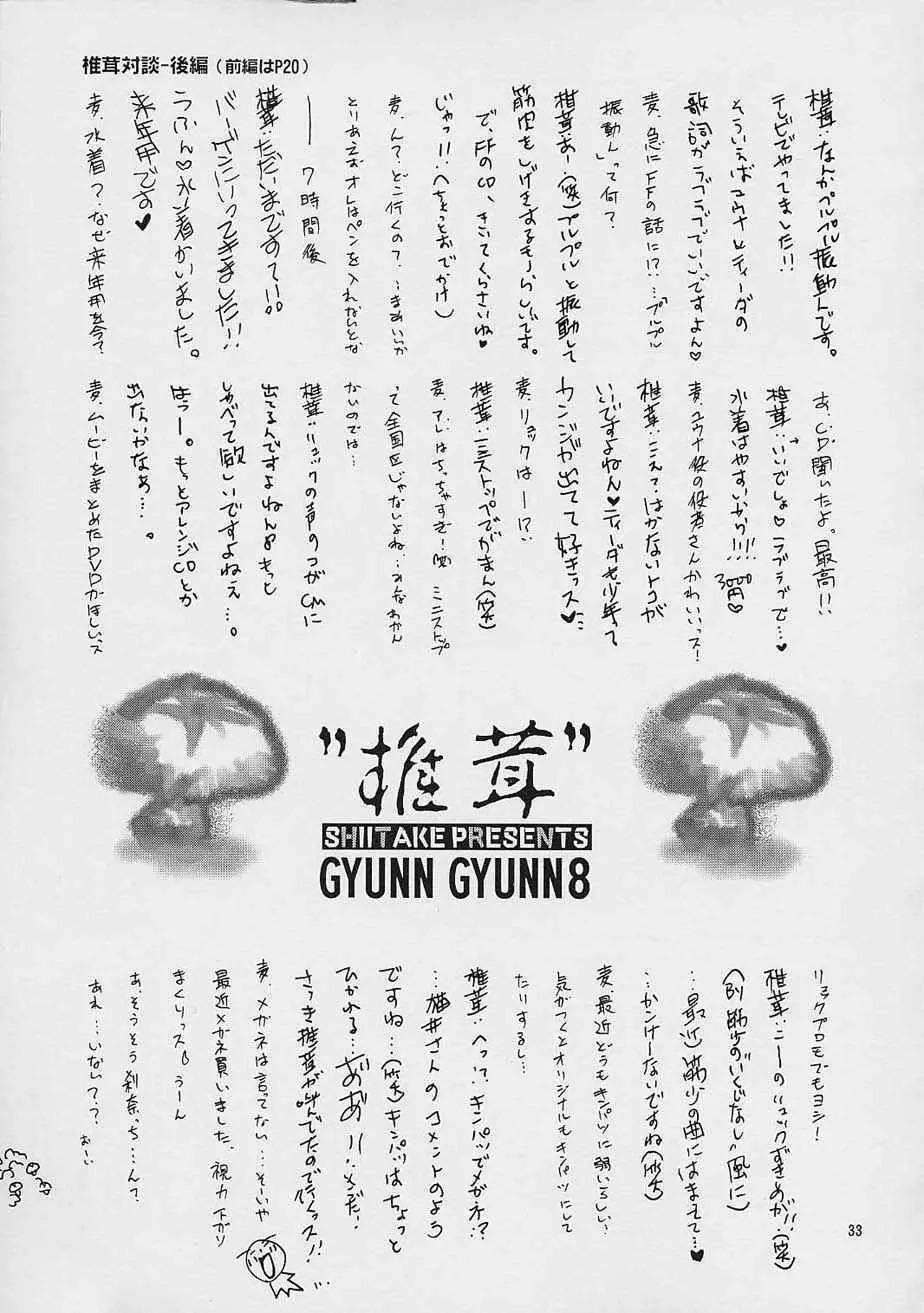 椎茸対談-後編（前編はP20）
椎茸：なんかプルプル振動んです。
テレビでやってました!!
そういえばユウナとティーダの
歌詞がラブラブでいいですよん♡
麦．急にFFの話に!?…プルプル
振動んって何？
椎茸：おー(笑)プルプルと振動して
筋肉をしげきするモノらしいです。
で、FFのCD、きいてくらさいね♥
じゃっ!!（ちょっとおでかけ）
麦．んて？どこ行くの？…まあいいか
とりあえずオレはペンを入れないとな
── 7時間後
椎茸：ただいまですてー!!。
バーゲンにいってきました!!
うふん♡水着かいました。
来年用です♥
麦．水着？なぜ来年用を今？
あ、CD聞いたよ。最高!!
椎茸：いいでしょ♡ラブラブで…♥
水着はやすいから!!!! 3000円♡
麦．ユウナ役の役者さんかわいいっス！
椎茸：こえ？はかないトコが
いいですよねん♡ティーダも少年って
カンジが出てて好きっス♥…
麦．リュックはー!?
椎茸：ミニストップでがまん(笑)
麦．アレはちっちゃすぎ！(笑) ミニストップ
って全国区じゃないよね…みなわかん
ないのでは…
椎茸：リュックの声のコがCMに
出てるんですよねん♪もっと
しゃべって欲しいですよねえ…。
はうー。もっとアレンジCDとか
出ないかなぁ…。
麦．ムービーをまとめたDVDがほしいっス
"椎茸"
SHIITAKE PRESENTS
GYUNN GYUNN8
リュックプロモでもヨシ！
椎茸：こーのリュックずきめが!!(笑)
(筋少の"いくじなし"風に)
…最近筋少の曲にはまえて…♥
…かんけーないですね(笑)
麦．最近どうもキンパツに弱いらしい…
気がつくとオリジナルもキンパツにして
たりするし…
椎茸：へっ!?、キンパツでメガネ!?
…猫井さんのコメントのよう
ですね…(笑)キンパツはちょっと
ひかれる…あぁ!!…メだ！
さっき椎茸が叫んでたので行くっス!!…
麦．メガネは言ってない…そーいや
最近メガネ買いました、視力下がり
まくりっス うーん
あ、そうそう刹奈っち…ん？
あれ…いない？？ おーい
33